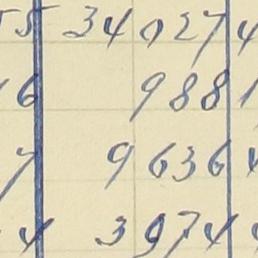 55 34027 4
6 988 1
7 9636
4 3974